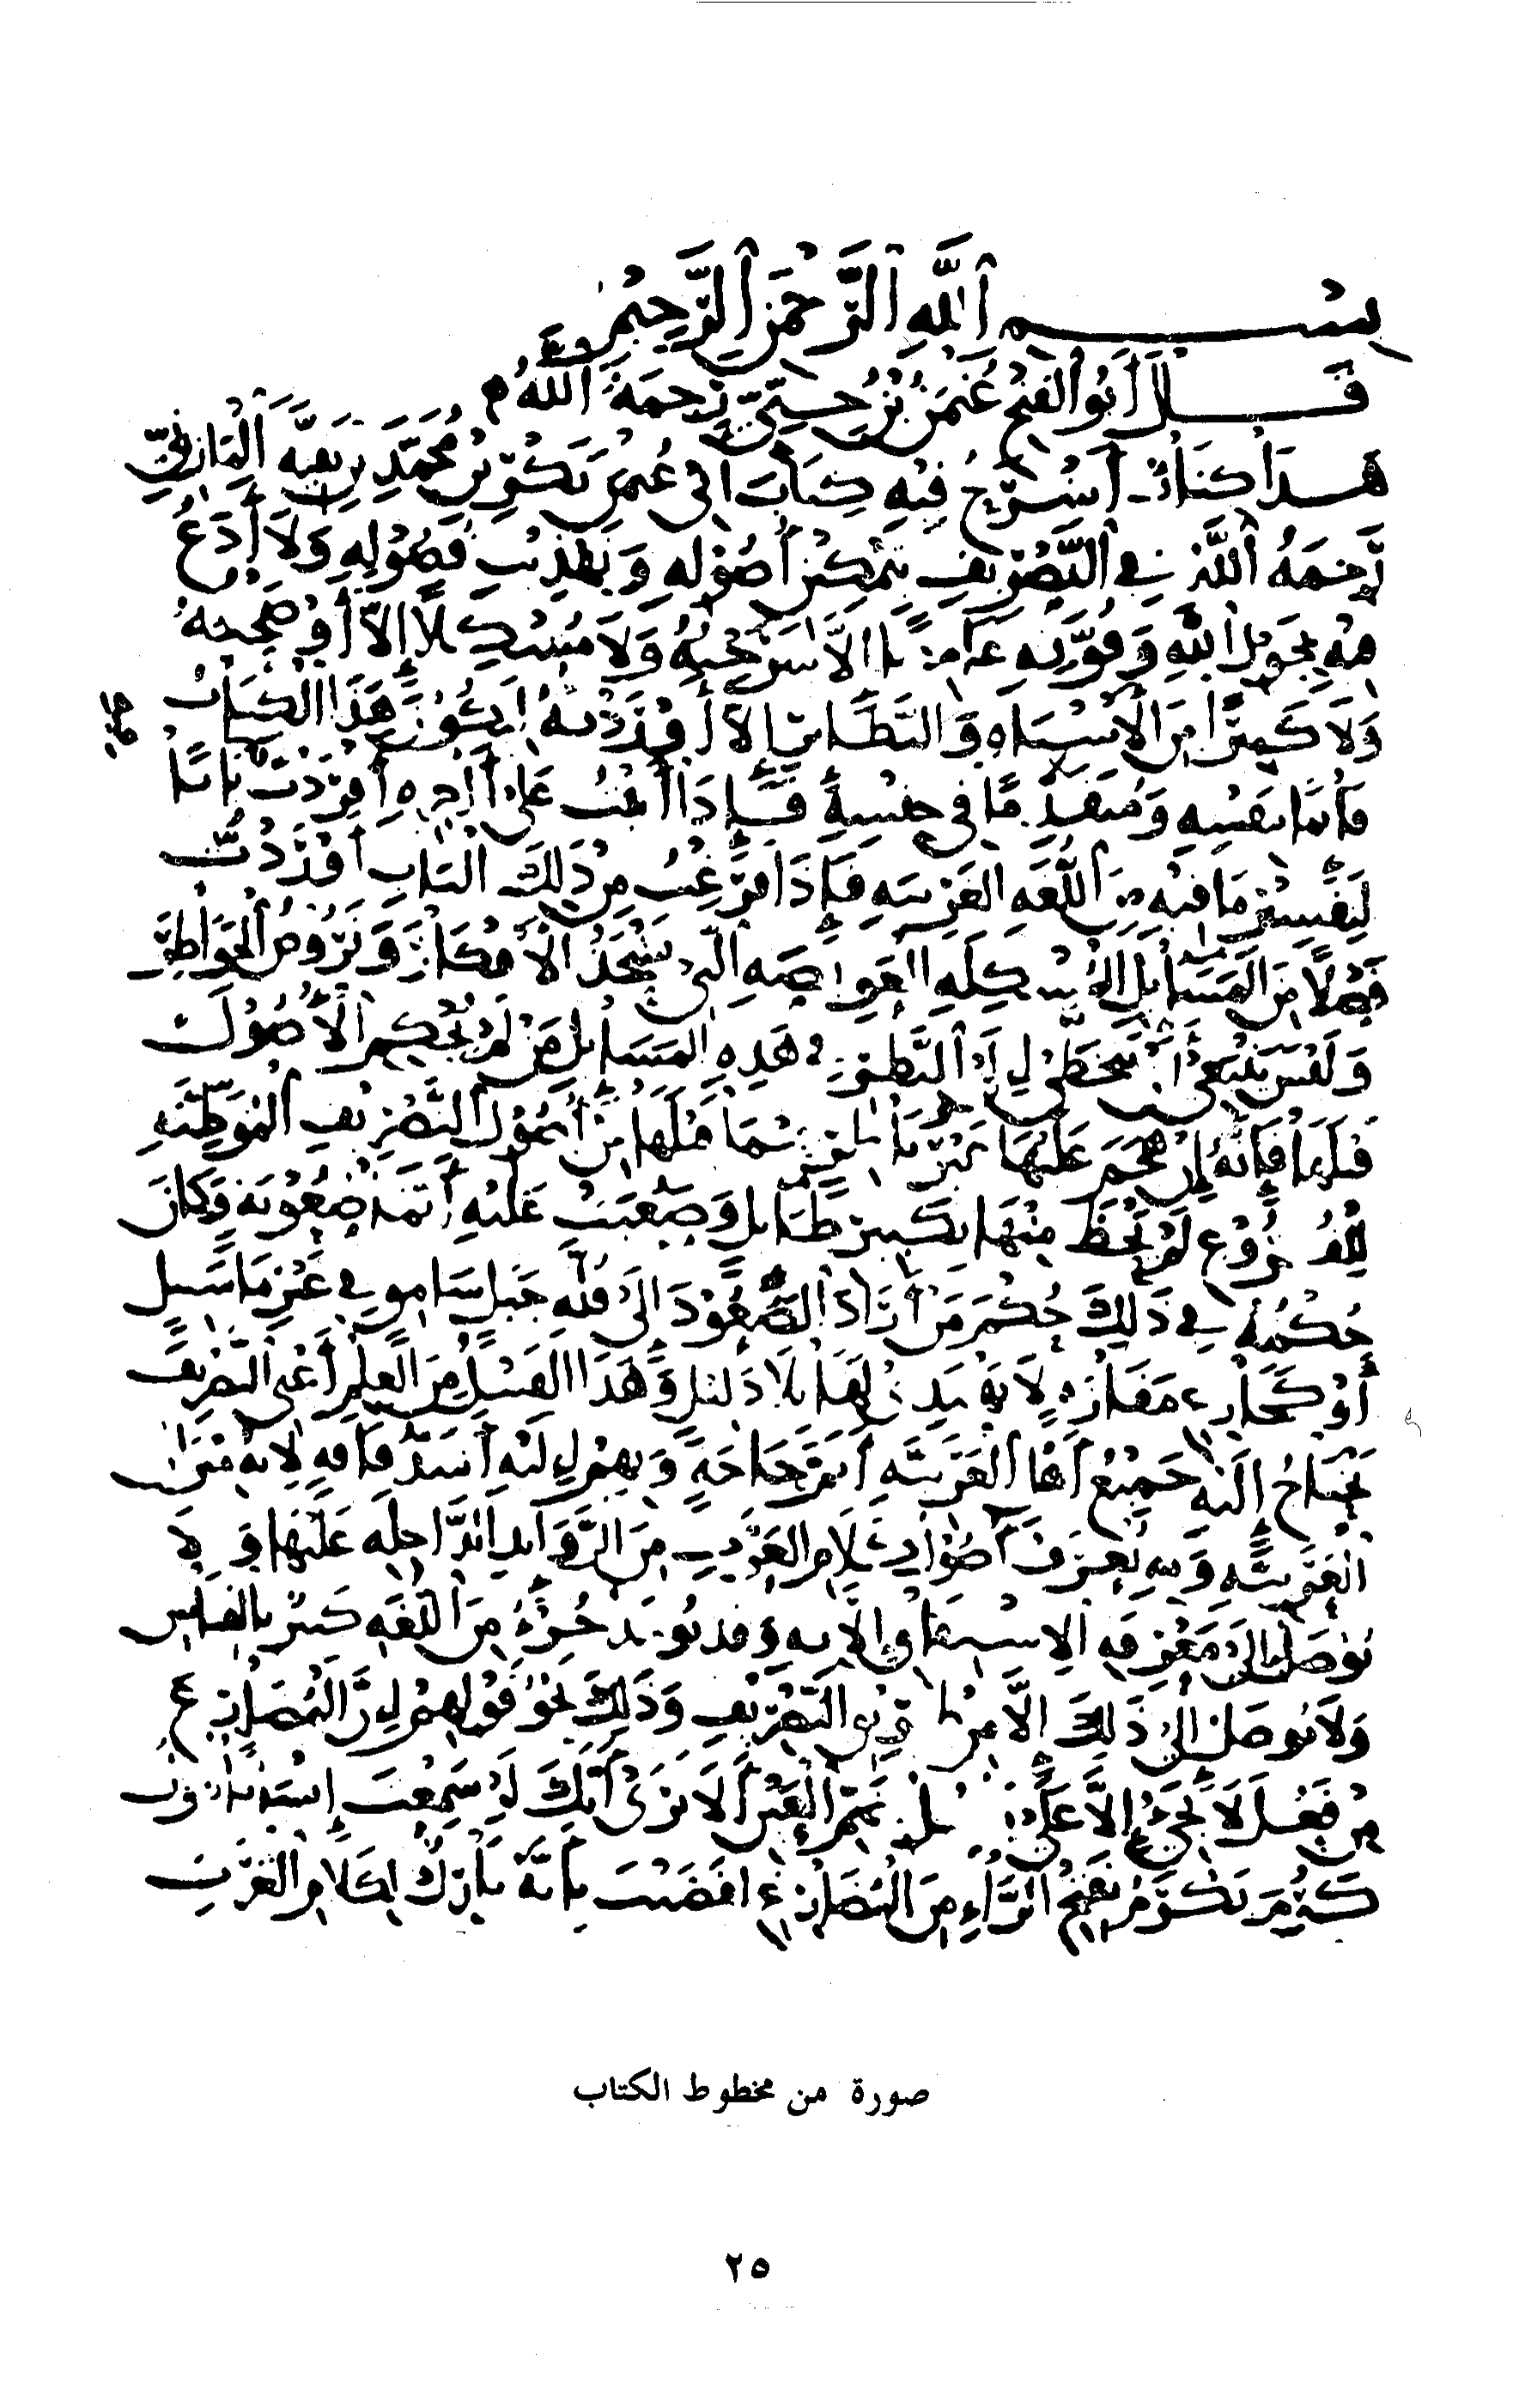 بسم الله الرحمن الرحيم
قال أبو الفتح عثمن بن جني رحمه الله
هذا كتاب أشرح فيه كتاب أبي عثمن بكر بن محمد بن بقية المازني
رحمه الله في التصريف بتمكين أصوله وتهذيب فصوله ولا أدع
فيه بحول الله وقوته غامضا إلا شرحته ولا مشكلا إلا أوضحته
ولا كثيرا من الأشباه والنظائر إلا أوردته ليكون هذا الكتاب
قائما بنفسه ومتقدما في جنسه فإذا أتيت على آخره أفردت بابا
لتفسير ما فيه من اللغة الغريبة فإذا فرغت من ذلك الباب أوردت
فصلا من المسائل المشكلة العويصة التي تشحذ الأفكار وتروض الخواطر
وليس ينبغي أن يتخطى إلى النظر في هذه المسائل من لم يحكم الأصول
قبلها فإنه إن هجم عليها غير ناظر فيما قبلها من أصول التصريف الموطئة
للفروع لم يحظ منها بكبير طائل وصعبت عليه أتم صعوبة وكان
حكمه في ذلك حكم من أراد الصعود إلى قلة جبل سامق في غير ما سبيل
أو كجازع مفازة لا يهتدي لها بلا دليل وهذا القبيل من العلم أعني التصريف
يحتاج إليه جميع أهل العربية أتم حاجة وبهم إليه أشد فاقة لأنه ميزان
العربية وبه تعرف أصول كلام العرب من الزوائد الداخلة عليها ولا
يوصل إلى معرفة الاشتقاق إلا به وقد يؤخذ جزء من اللغة كبير بالقياس
ولا يوصل إلى ذلك إلا من طريق التصريف وذلك نحو قولهم إن المضارع
من فعل لا يجيء إلا على يفعل بضم العين ألا ترى أنك لو سمعت إنسانا يقول
كرم يكرم بفتح الراء من المضارع لقضيت بأنه تارك لكلام العرب
صورة من مخطوط الكتاب
٢٥